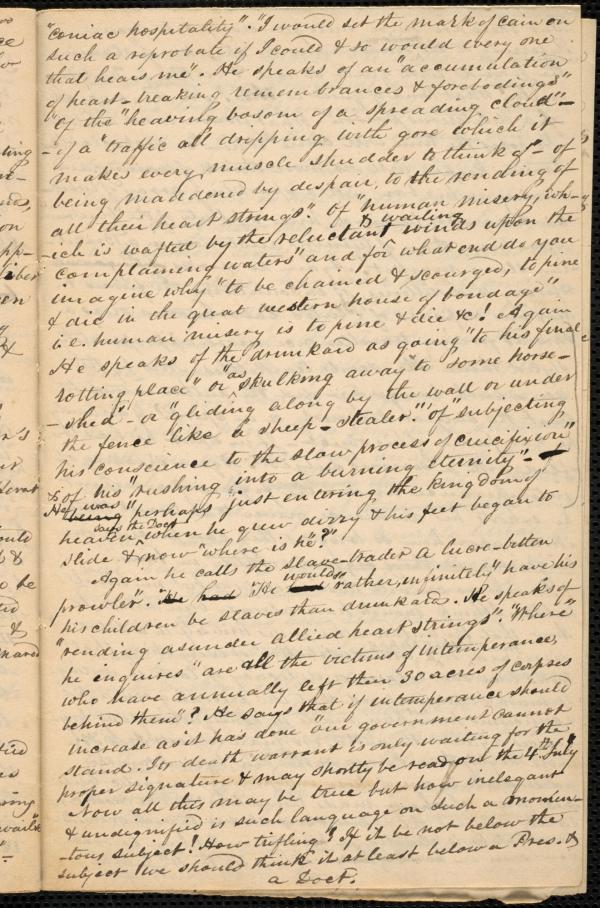 "coniac hospitality". "I would set the mark of cain on
such a reprobate if I could & so would every one
that hears me". He speaks of an "accumulation
of heart-breaking remembrances & forebodings"
"of the "heaving bosom of a spreading cloud"-
- of a "traffic all dripping with gore which it
makes every muscle shudder to think of" - of
being maddened by despair, to the rending of
all their heart strings". Of "human misery, wh-
ich is wafted by the reluctant & wailing winds upon the
complaining waters" and for what end do you
imagine why "to be chained & scourged, to pine
& die in the great western house of bondage"
i.e. human misery is to pine & die &c! Again
He speaks of the drunkard as going "to his final
rotting place" or "as skulking away "to some horse-
-shed" - or "gliding along by the wall or under
the fence "like a sheep-stealer"." of "subjecting
his conscience to the slow process of crucifixion"
& of his "rushing into a burning eternity"-
He was being "perhaps just entering the kingdom of
heaven," says the Doct "when he grew dizzy & his feet began to
slide & now "where is he?"
Again he calls the slave-trader a lucre-bitten
prowler". He had "He would "rather, infinitely" have his
his children be slaves than drunkards. He speaks of
"rending asunder allied heart strings". "Where"
he enquires "are all the victims of intemperance,
who have annually left their 30 acres of corpses
behind them"? He says that if intemperance should
increase as it has done "our government cannot
stand. Its death warrant is only waiting for the
proper signature & may shortly be read on the 4th July
Now all this may be true but how inelegant
& undignified is such language on such a momen-
-tous subject! How trifling! If it be not below the
subject we should think it at least below a Pres. &
a Doct.